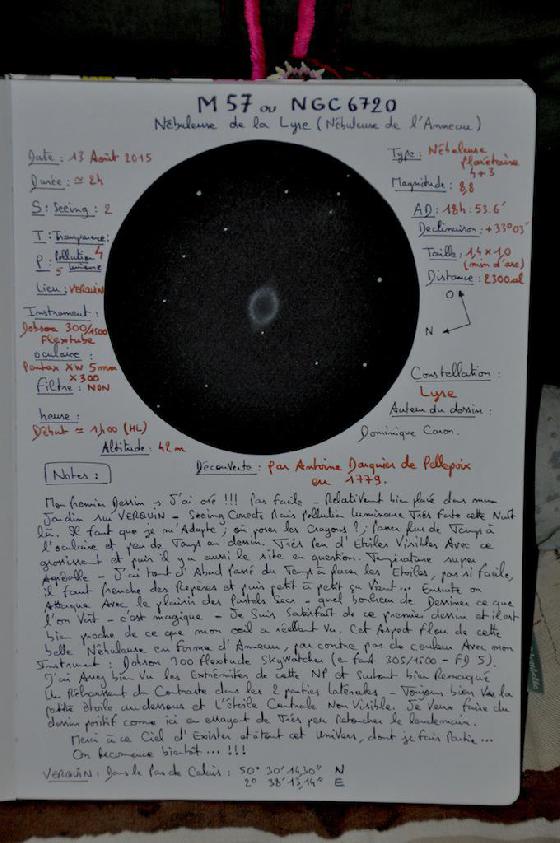 M 57 ou NGC 6720
Nébuleuse de la Lyre (Nébuleuse de l'Anneau)
Date : 13 Août 2015
Durée : ≃ 2h
S : Seeing : 2
T : Transparence : 4
P : Pollution lumineuse 5
Lieu : VERQUIN
Instrument :
Dobson 300/1500
Flextube
oculaire :
Pentax XW 5mm
x300
Filtre : NON
heure :
Début ≃ 1h00 (HL)
Altitude : 42 m
Type : Nébuleuse
Planétaire
4+3
Magnitude : 8,8
AD : 18h : 53.6'
Declinaison : +33°03'
Taille : 1.4 x 1.0
(min d'arc)
Distance : 2300 al
O
N
Constellation :
Lyre
Auteur du dessin :
Dominique Caron.
Découverte : par Antoine Darquier de Pellepoix
en 1779.
Notes :
Mon premier Dessin → J'ai osé !!! Pas facile - Relativement bien placé dans mon
Jardin sur VERQUIN - Seeing Correcte Mais pollution lumineuse Très forte cette Nuit
là. Il faut que je m'Adapte, où poser les crayons ? ; passer plus de Temps à
l'oculaire et peu de Temps au dessin. Très peu d'Etoiles Visibles Avec ce
grossissement et puis il y a aussi le site en question. Température super
Agréable - J'ai tout d'Abord passé du Temps à placer les Etoiles, pas si facile,
il faut prendre des Repères et puis petit à petit ça Vient... Ensuite on
Attaque Avec le plaisir des Pastels secs - quel bonheur de Dessiner ce que
l'on Voit - c'est magique - Je Suis Satisfait de ce premier dessin et il est
bien proche de ce que mon oeil a réellement Vu. Cet Aspect flou de cette
belle Nébuleuse en Forme d'Anneau, par contre pas de couleur Avec mon
Instrument : Dobson 300 flextude Skywatcher (en fait 305/1500 - FD 5).
J'ai Assez bien Vu les Extrémités de cette NP et Surtout bien Remarqué
un Réhaussement du Contraste dans les 2 parties latérales - Toujours bien Vu la
petite étoile au dessous et L'étoile Centrale Non Visible. Je Veux faire du
dessin positif comme ici en essayant de Très peu retoucher le lendemain.
Merci à ce Ciel d'Exister et à tout cet Univers, dont je fais Partie...
On Recommence bientôt ... !!!
VERQUIN : Dans le Pas de Calais : 50° 30' 14,30" N
2° 38' 13,14" E